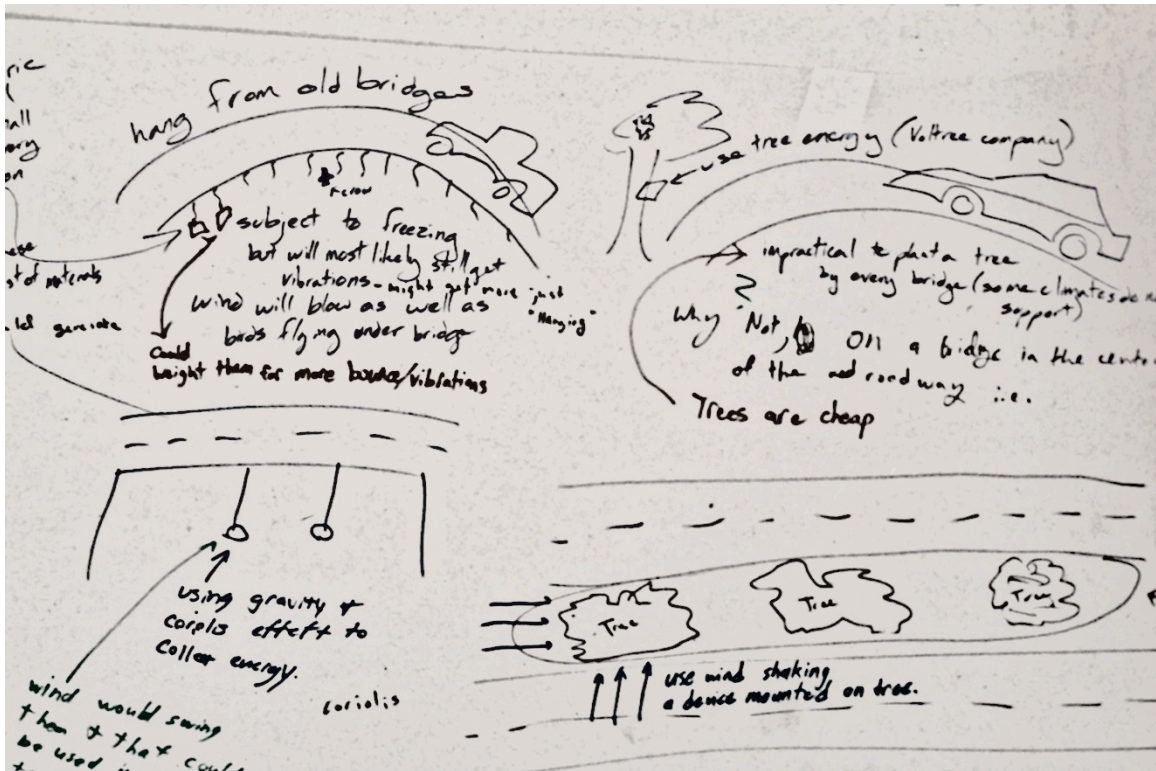 hang from old bridges
subject to freezing
but will most likely still get
vibrations - might get more just
"Hanging"
wind will blow as well as
birds flying under bridge
could
weight them for more bounce/vibrations
st of materials
generate
using gravity &
coriolis effect to
collect energy.
coriolis
wind would swing
them & that could
be used
use tree energy (Voltree company)
impractical to plant a tree
by every bridge (some climates do
support)
?
Why Not, On a bridge in the cente
of the road way i.e.
Trees are cheap
Tree
Tree
Tree
use wind shaking
a device mounted on tree.